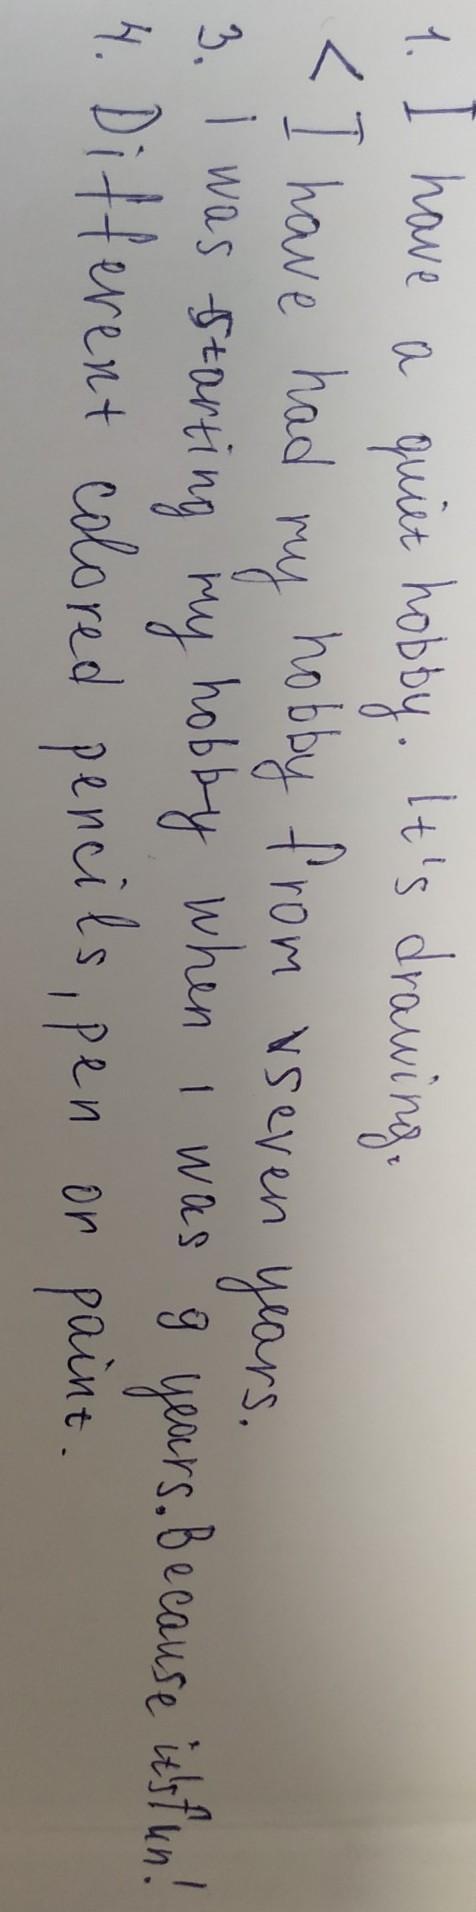 1. I have a quiet hobby. It's drawing.
< I have had my hobby from seven years.
3. I was starting my hobby when I was 9 years. Because it's fun!
4. Different colored pencils, pen or paint.